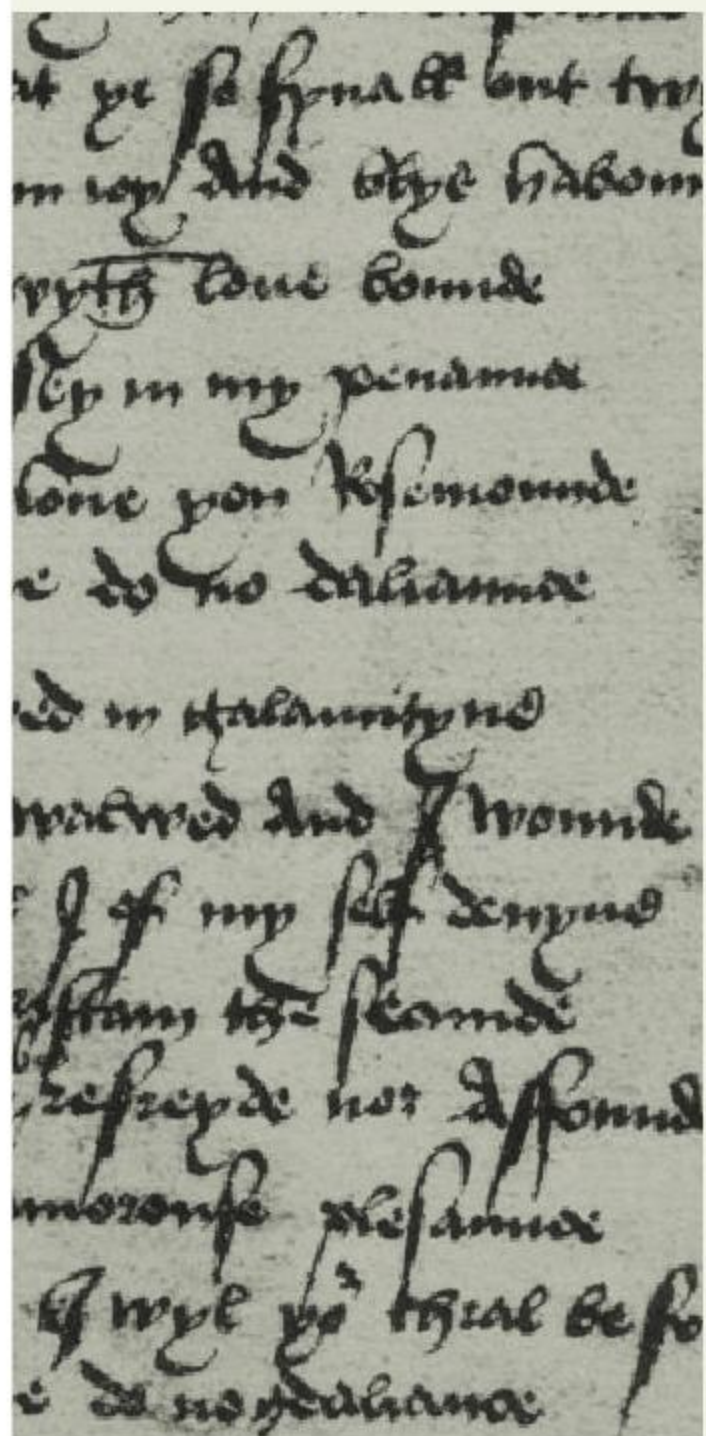 at ye so fynall out twy
in ioy And blys haboun
wyth loue bounde
sey in my penaunce
loue you Rosemounde
e do no daliaunce
ed in galauntyne
walwed And I wounde
I of my self deuyne
ristam the secunde
refreyde nor Affounde
morouse plesaunce
I wyl yor thral be fo
e do no daliance